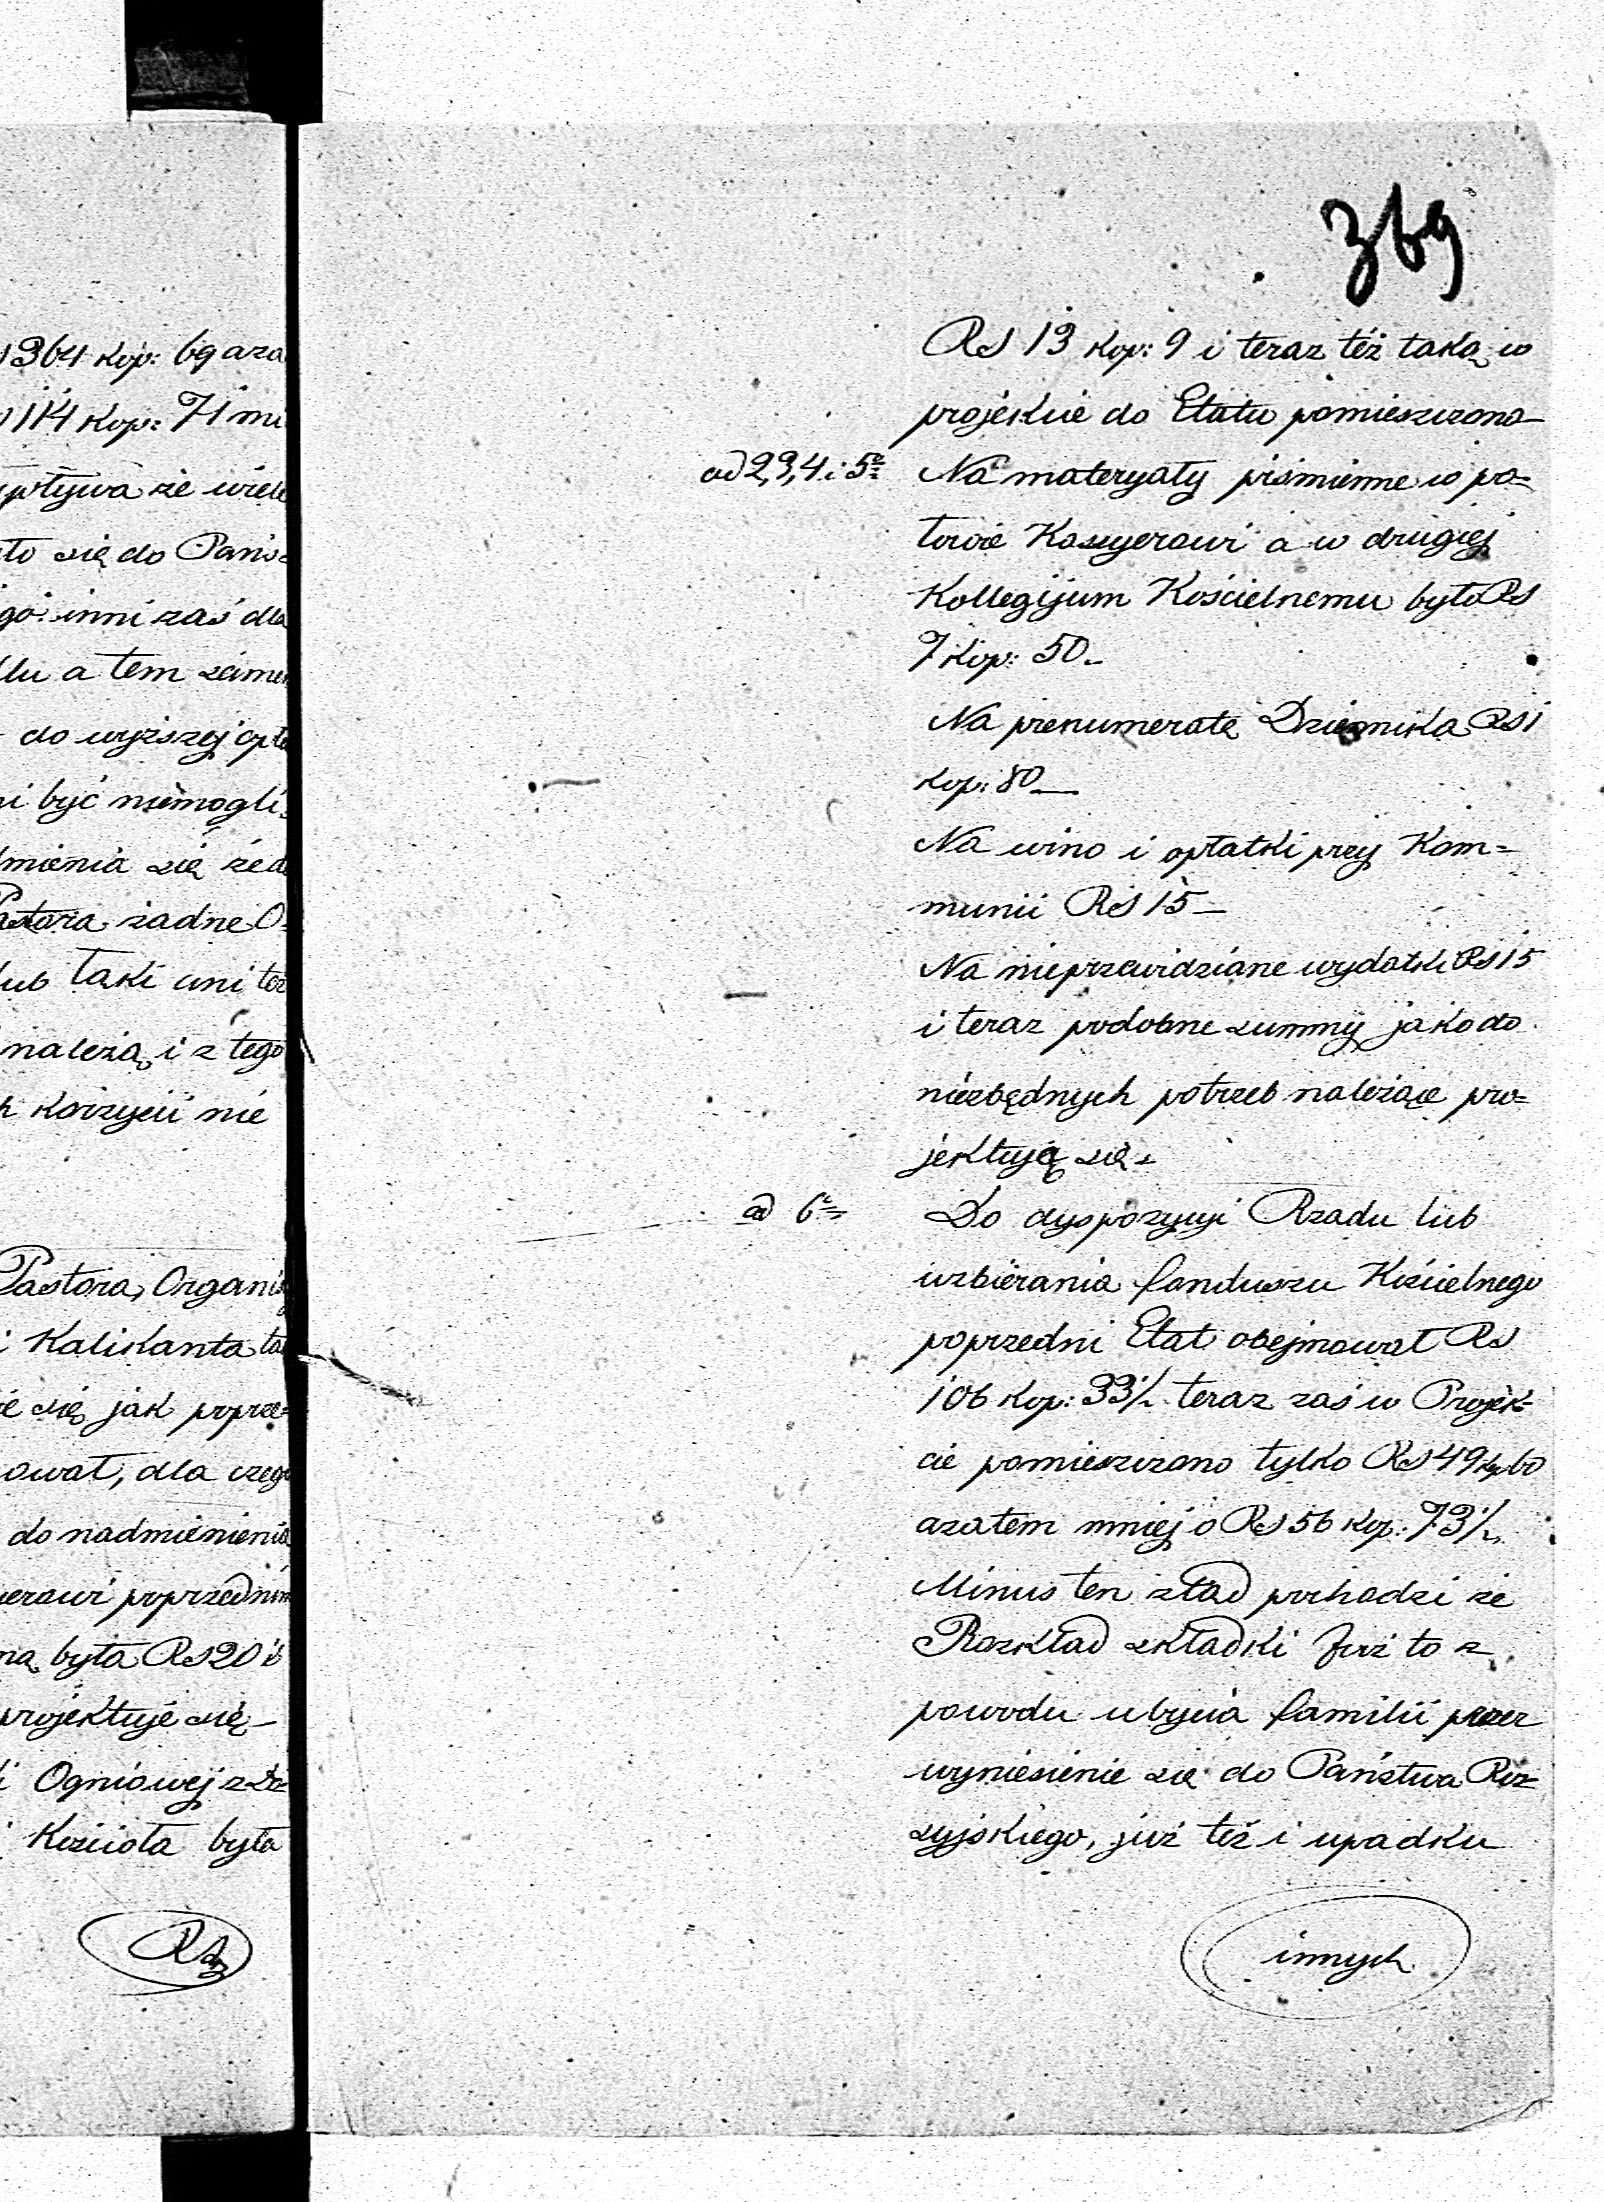 1364 kop: 69 aza
114 kop: 71 mi
pływa że wiele
ło się do Pańs=
go inni zaś dla
lu a tem samem
do wyższej opła
i być niemogli.
mienia się że d
Pastora żadne O=
lub taki uni też
należą i z tego
korzyści nie
Pastora, Organis
i Kalikanta ta
e się jak poprze=
ował, dla czego
do nadmienienia
erowi poprzednim
na była RS 20 i
projektuje się_
i Ogniowej z Do
Kościoła była
RS
369
RS 13 kop: 9 i teraz też taką w
projekcie do Etatu pomieszczono_
ad 2, 3, 4 i 5º
Na materyały piśmienne w po=
łowie Kassyerowi a w drugiej
Kollegijum Kościelnemu było RS
7 kop: 50_
Na prenumeratę Dziennika RS 1
kop: 80_
Na wino i opłatki przy Kom=
munii RS 15_
Na nieprzewidziane wydatki RS 15
i teraz podobne summy jako do
niezbędnych potrzeb należące pro=
jektują się_
ad 6º
Do dyspozycyi Rządu lub
uzbierania funduszu Kościelnego
poprzedni Etat obejmował RS
106 kop: 33½ teraz zaś w Projek=
cie pomieszczono tylko RS 49 kop 60
azatem mniej o RS 56 kop: 73½.
Minus ten ztąd pochodzi że
Rozkład składki już to z
powodu ubycia familii przez
wyniesienie się do Państwa Ros=
syjskiego, już też i upadku
innych